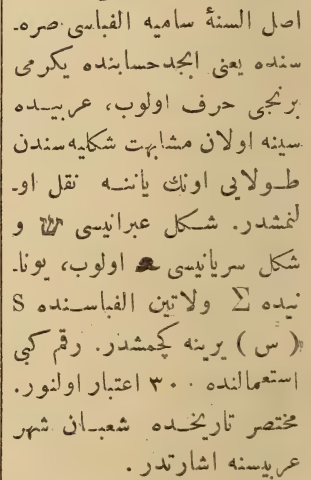 اصل السنهٔ ساميه الفباسى صره‌ـ
سنده يعنى ابجدحسابنده يكرمى
برنجى حرف اولوب، عربيــده
سينه اولان مشابهت شكليه‌سندن
طــولايى اونك ياننــه نقل او‌ـ
لنمشدر. شــكل عبرانيسى ש و
شكل سريانيسى ܫ اولوب، يونا‌ـ
نيده Σ ولاتين الفباســنده S
(س) يرينه كچمشدر. رقم كبى
استعمالنده ٣٠٠ اعتبار اولنور.
مختصر تاريخــده شعبــان شهر
عربيسنه اشارتدر.